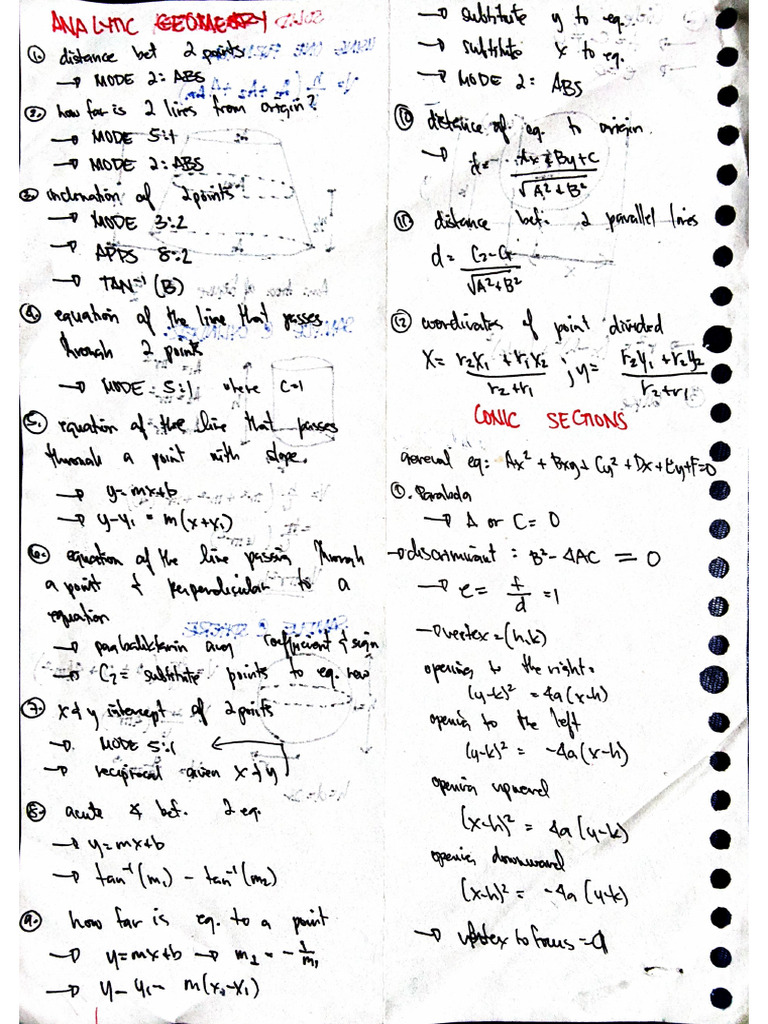 ANALYTIC GEOMETRY
1. distance bet 2 points
→ MODE 2: ABS
2. how far is 2 lines from origin?
→ MODE 5:1
→ MODE 2: ABS
3. inclination of 2 points
→ MODE 3:2
→ APPS 8:2
→ TAN⁻¹ (B)
4. equation of the line that passes
through 2 points
→ MODE 5:1 where C=1
5. equation of the line that passes
through a point with slope.
→ y=mx+b
→ y-y₁ = m(x+x₁)
6. equation of the line passing through
a point & perpendicular to a
equation
→ pagbaliktarin ang coefficient & sign
→ C₂ = substitute points to eq. new
7. x & y intercept of 2 points
→ MODE 5:1
→ reciprocal given x & y
8. acute ∡ bet. 2 eq.
→ y=mx+b
→ tan⁻¹(m₁) - tan⁻¹(m₂)
9. how far is eq. to a point
→ y=mx+b → m₂ = -1/m₁
→ y-y₁= m(x₂-x₁)
→ substitute y to eq.
→ substitute x to eq.
→ MODE 2: ABS
10 distance of eq. to origin.
→ d= Ax+By+C / √A²+B²
11 distance bet. 2 parallel lines
d= C₂-C₁ / √A²+B²
12 coordinates of point divided
X= r₂x₁ + r₁x₂ / r₂+r₁ ; y= r₂y₁ + r₂y₂ / r₂+r₁
CONIC SECTIONS
General eq: Ax² + Bxy + Cy² + Dx + Ey + F=0
1. Parabola
→ A or C= 0
→ discriminant : B²-4AC = 0
→ e = f/d = 1
→ vertex = (h,k)
opening to the right:
(y-k)² = 4a(x-h)
opening to the left
(y-k)² = -4a(x-h)
opening upward
(x-h)² = 4a(y-k)
opening downward
(x-h)² = -4a(y-k)
→ vertex to focus = a